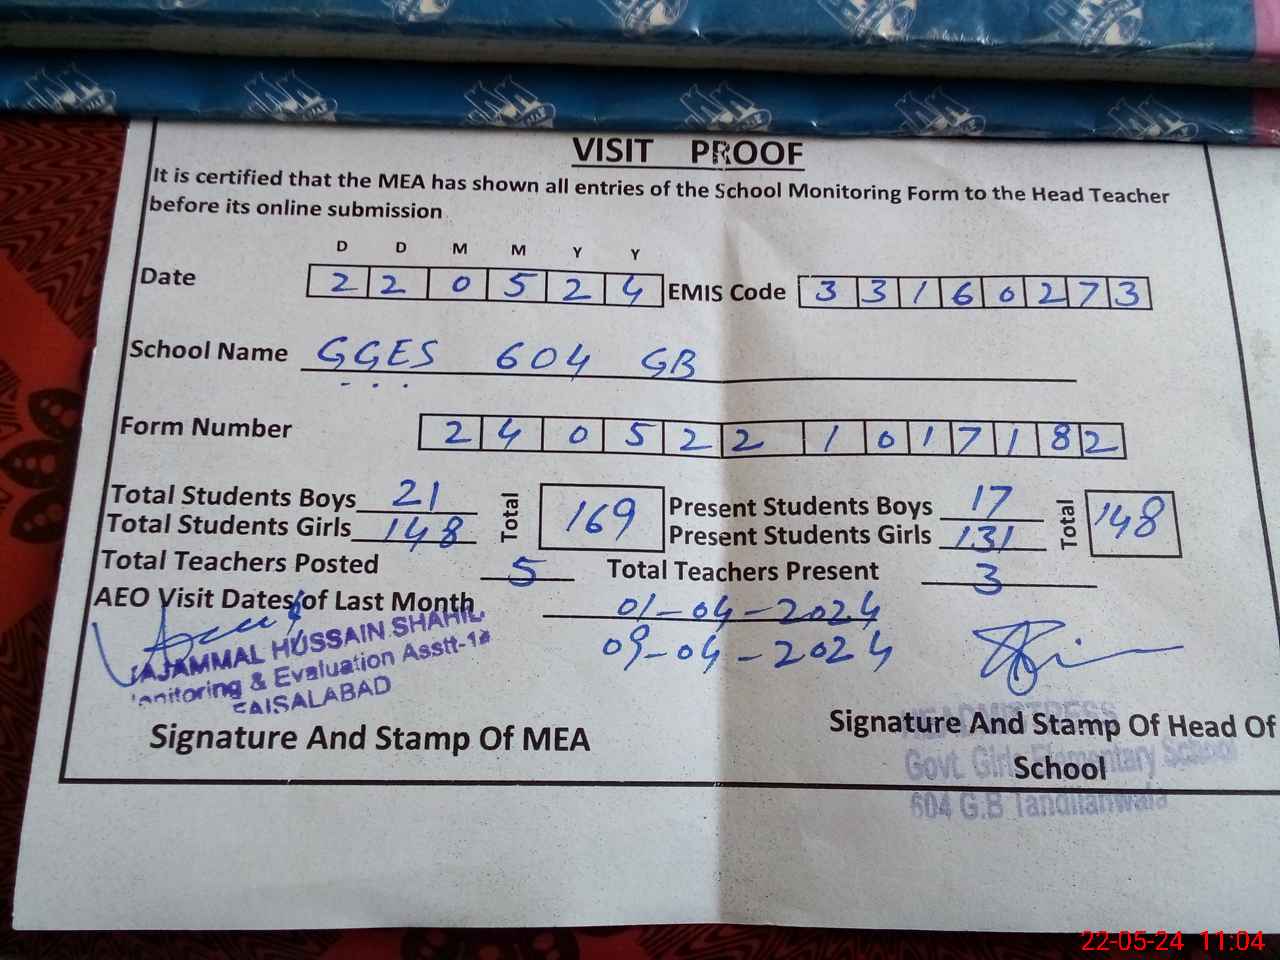 VISIT PROOF
It is certified that the MEA has shown all entries of the School Monitoring Form to the Head Teacher
before its online submission
D D M M Y Y
Date 2 2 0 5 2 4 EMIS Code 3 3 1 6 0 2 7 3
School Name GGES 604 GB
Form Number 2 4 0 5 2 2 1 0 1 7 1 8 2
Total Students Boys 21 Total 169 Present Students Boys 17 Total 148
Total Students Girls 148 Present Students Girls 131
Total Teachers Posted 5 Total Teachers Present 3
AEO Visit Dates of Last Month 01-04-2024
09-04-2024
AJAMMAL HUSSAIN SHAHID
onitoring & Evaluation Asstt-1
FAISALABAD
Signature And Stamp Of MEA
Signature And Stamp Of Head Of
School
HEADMISTRESS
Govt. Girls Elementary School
604 G.B Tandlianwala
22-05-24 11:04